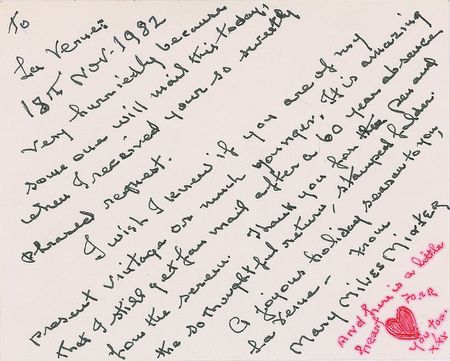 To
La Verne:
18th Nov. 1982
Very hurriedly because
some one will mail this today,
when I received your so sweetly
phrased request.
I wish I knew if you are of my
present vintage or much younger. It is amazing
that I still get fan mail after a 60 year absence
from the screen. Thank you for the Pen and
the so thoughtful return, stamped folder.
A joyous holiday season to you,
La Verne –
From
Mary Miles Minter
And here is a little
heart
FOR
you too.